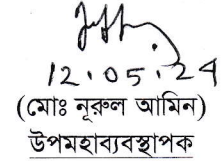 12.05.24
(মোঃ নূরুল আমিন)
উপমহাব্যবস্থাপক